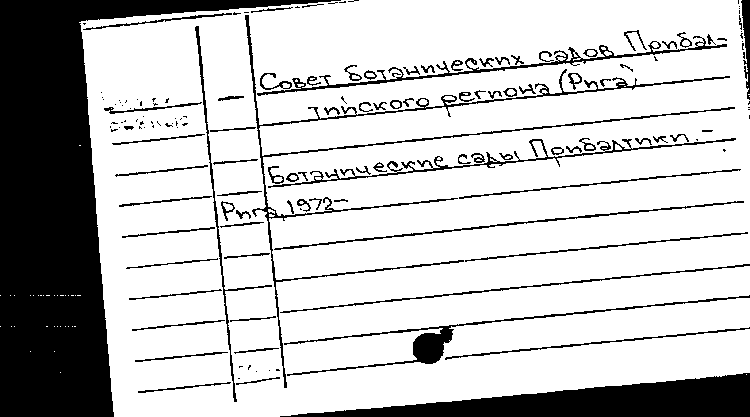 Совет ботанических садов Прибал-
тийского региона (Рига)
Ботанические сады Прибалтики. -
Рига, 1972-